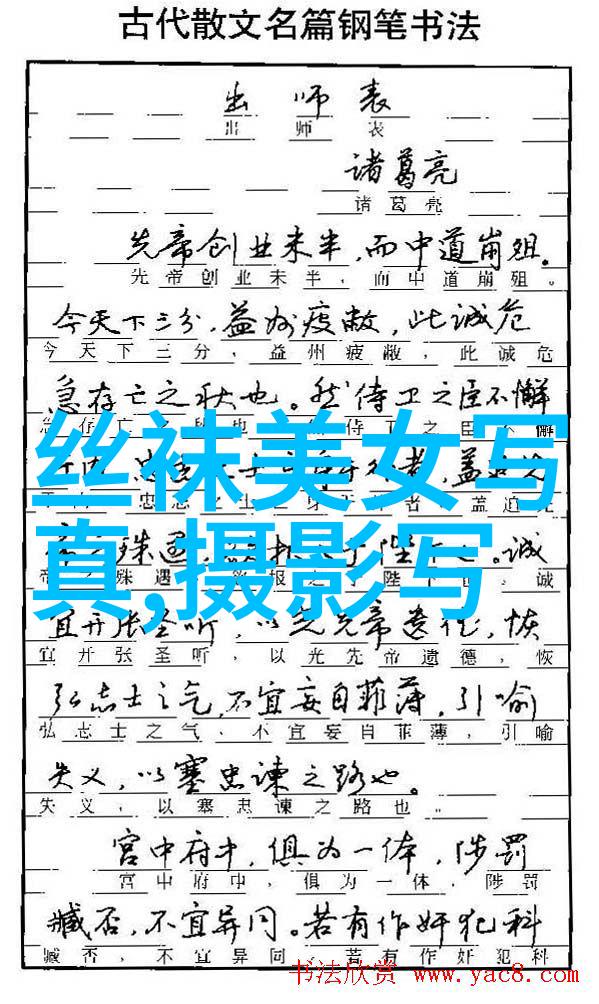 古代散文名篇钢笔书法
出师表
出师表
诸葛亮
诸葛亮
先帝创业未半，而中道崩殂。
先帝创业未半，而中道崩殂。
今天下三分，益州疲敝，此诚危
今天下三分，益州疲敝，此诚危
急存亡之秋也。然侍卫之臣不懈
存亡之 也 侍卫之臣不懈
丝袜美女写
忠 之士 身 者，盖追
忠志之士 身 者 盖追
真,摄影写
殊遇， 报 于陛下也。诚
帝 殊遇 报 陛下 诚
宜开张圣听，以光先帝遗德，恢
宜开张圣听，以光先帝遗德，恢
弘志士之气，不宜妄自菲薄，引喻
弘志士之气，不宜妄自菲薄，引喻
失义，以塞忠谏之路也。
失义，以塞忠谏之路也。
宫中府中，俱为一体，陟罚
宫中府中，俱为一体，陟罚
臧否，不宜异同。若有作奸犯科
臧否，不宜异同。若有作奸犯科
书法欣赏 www.yac8.com